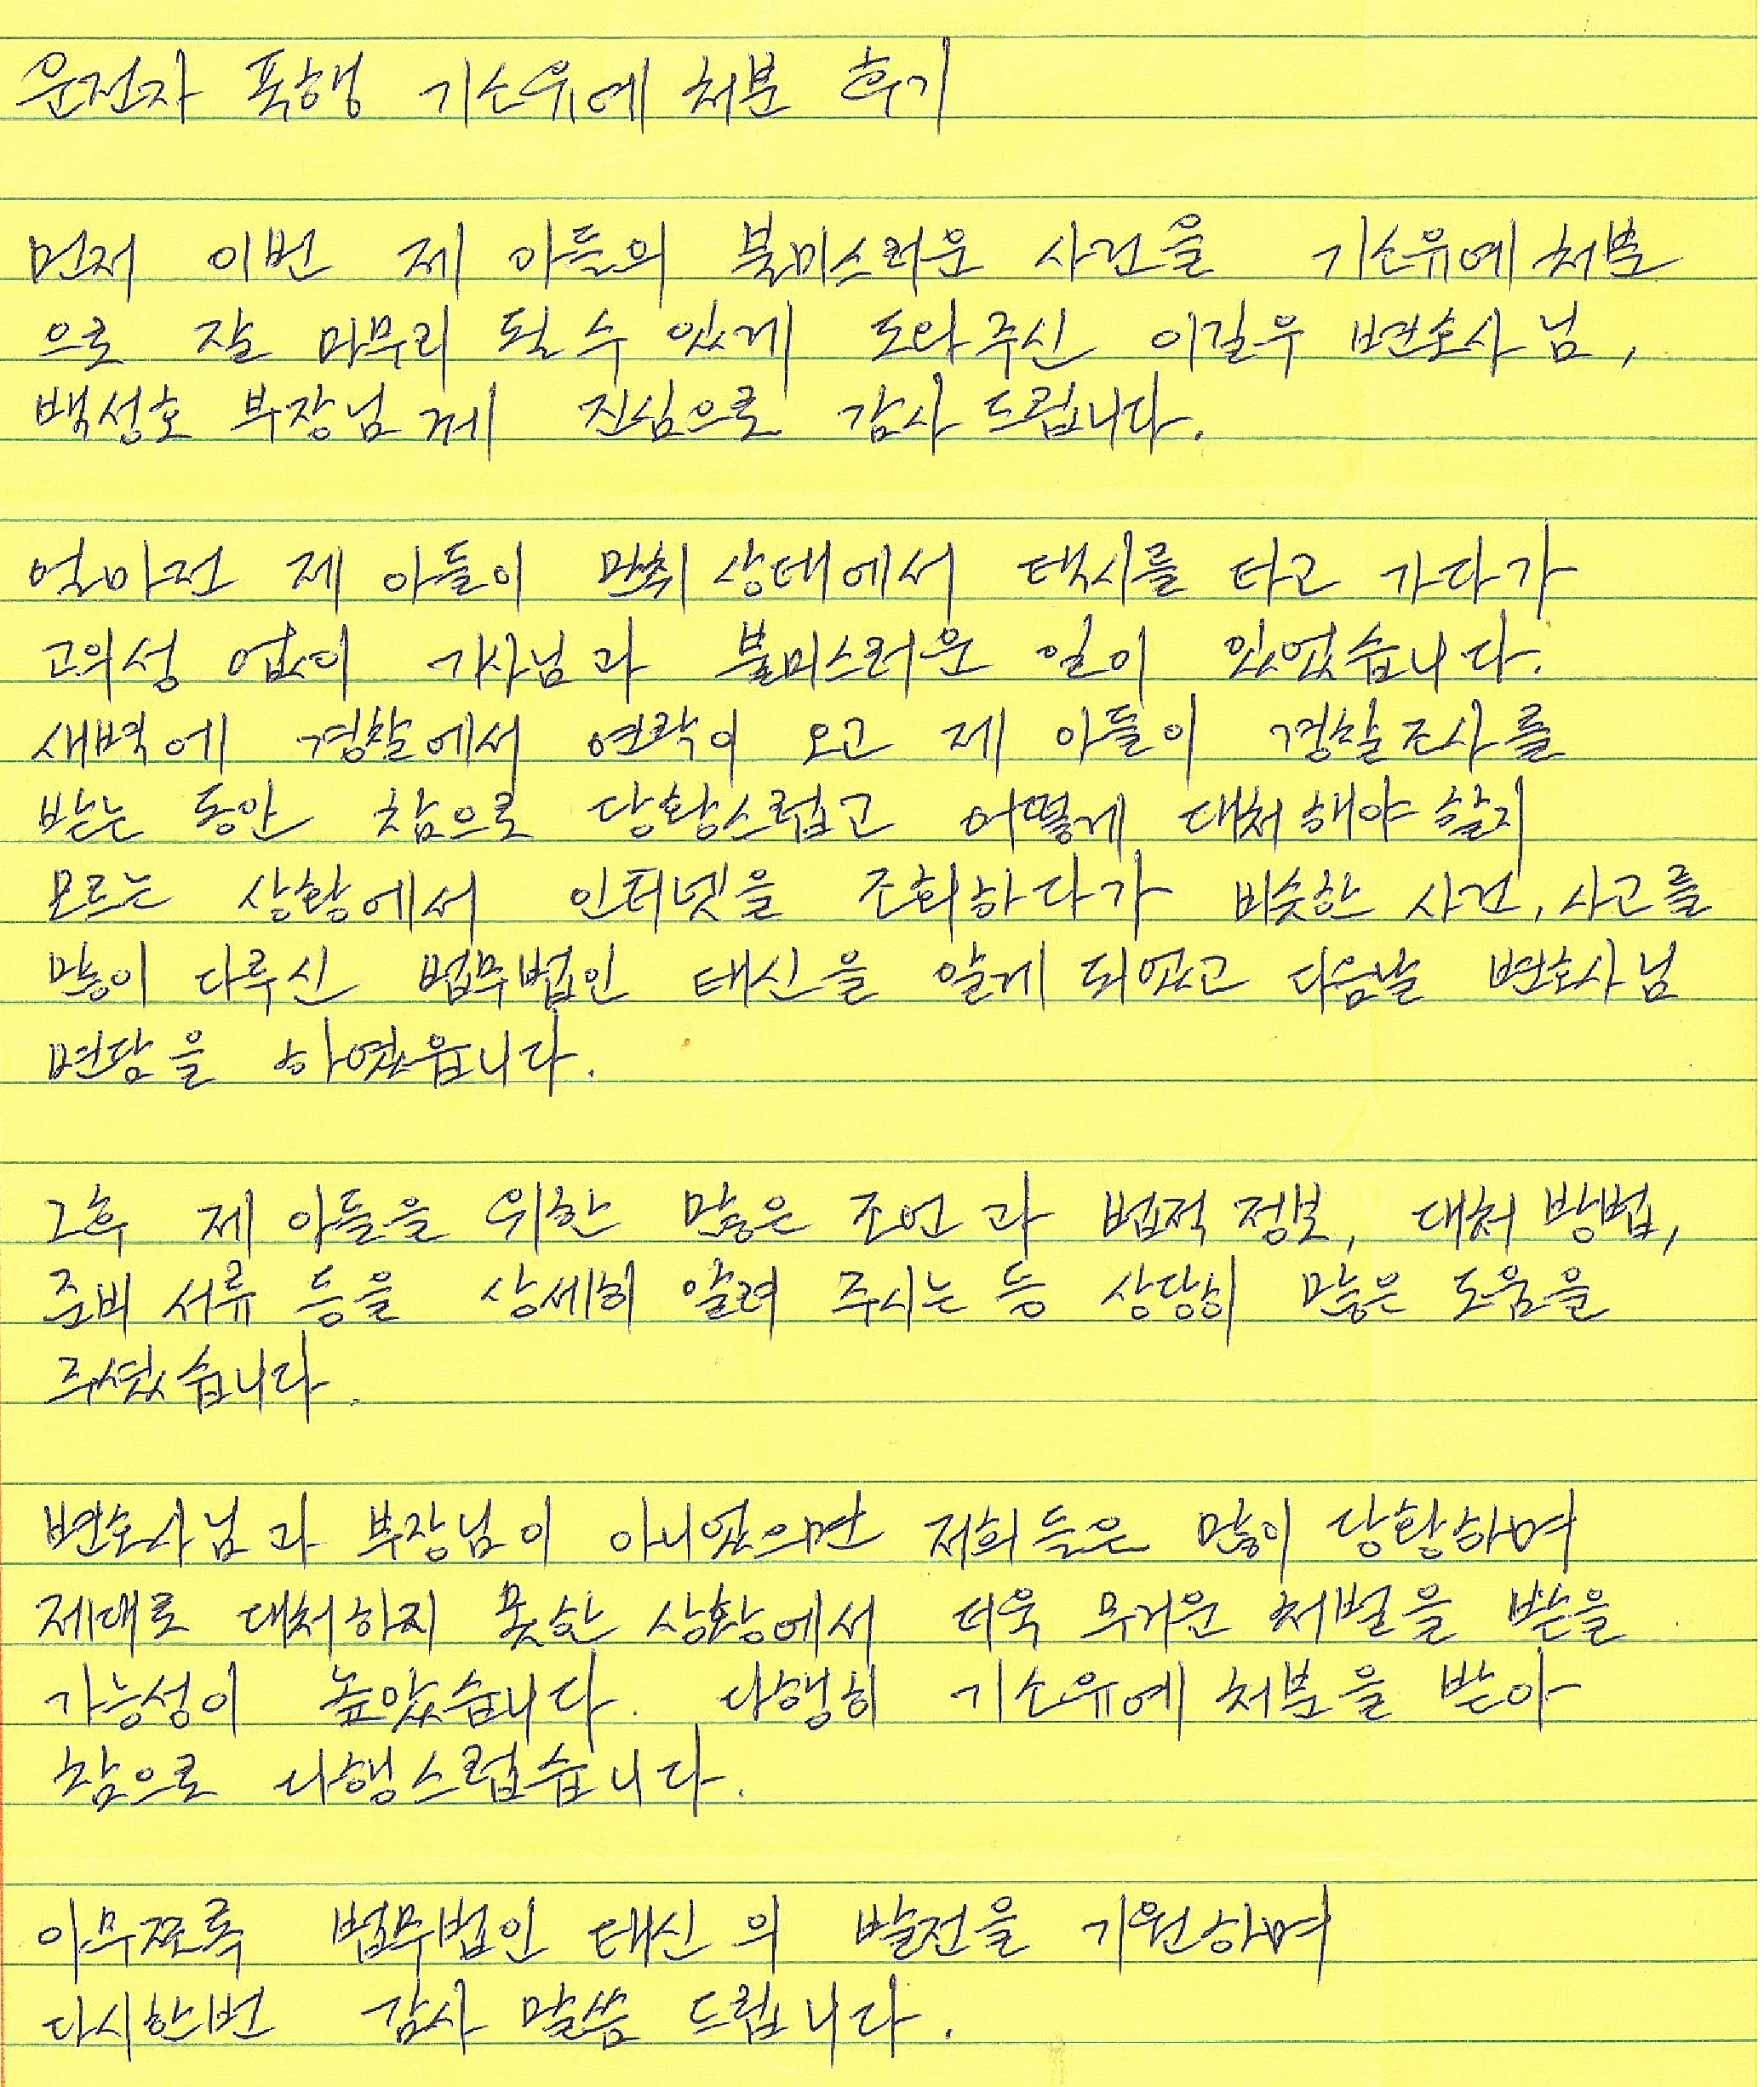 운전자 폭행 기소유예 처분 후기
먼저 이번 제 아들의 불미스러운 사건을 기소유예 처분
으로 잘 마무리 될 수 있게 도와주신 이길우 변호사님,
백성호 부장님께 진심으로 감사 드립니다.
얼마전 제 아들이 만취 상태에서 택시를 타고 가다가
고의성 없이 기사님과 불미스러운 일이 있었습니다.
새벽에 경찰에서 연락이 오고 제 아들이 경찰조사를
받는 동안 참으로 당황스럽고 어떻게 대처해야 할지
모르는 상황에서 인터넷을 조회하다가 비슷한 사건, 사고를
많이 다루신 법무법인 태신을 알게 되었고 다음날 변호사님
면담을 하였읍니다.
그후 제 아들을 위한 많은 조언과 법적 정보, 대처 방법,
준비 서류 등을 상세히 알려 주시는 등 상당히 많은 도움을
주셨습니다.
변호사님과 부장님이 아니었으면 저희들은 많이 당황하며
제대로 대처하지 못한 상황에서 더욱 무거운 처벌을 받을
가능성이 높았습니다. 다행히 기소유예 처분을 받아
참으로 다행스럽습니다.
아무쪼록 법무법인 태신의 발전을 기원하며
다시한번 감사 말씀 드립니다.